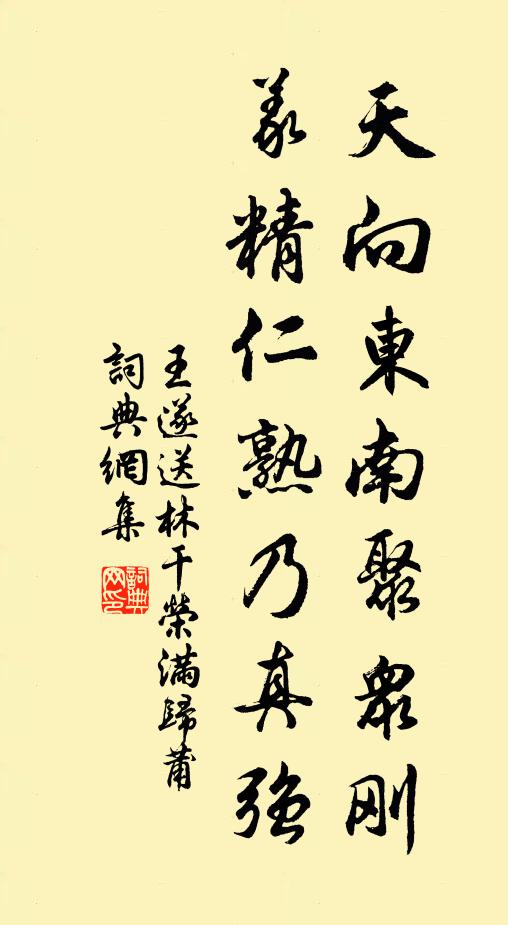 天向東南聚衆刚
義精仁熟乃真強
王遂送林干榮滿歸莆
詞典網集
詞典網印